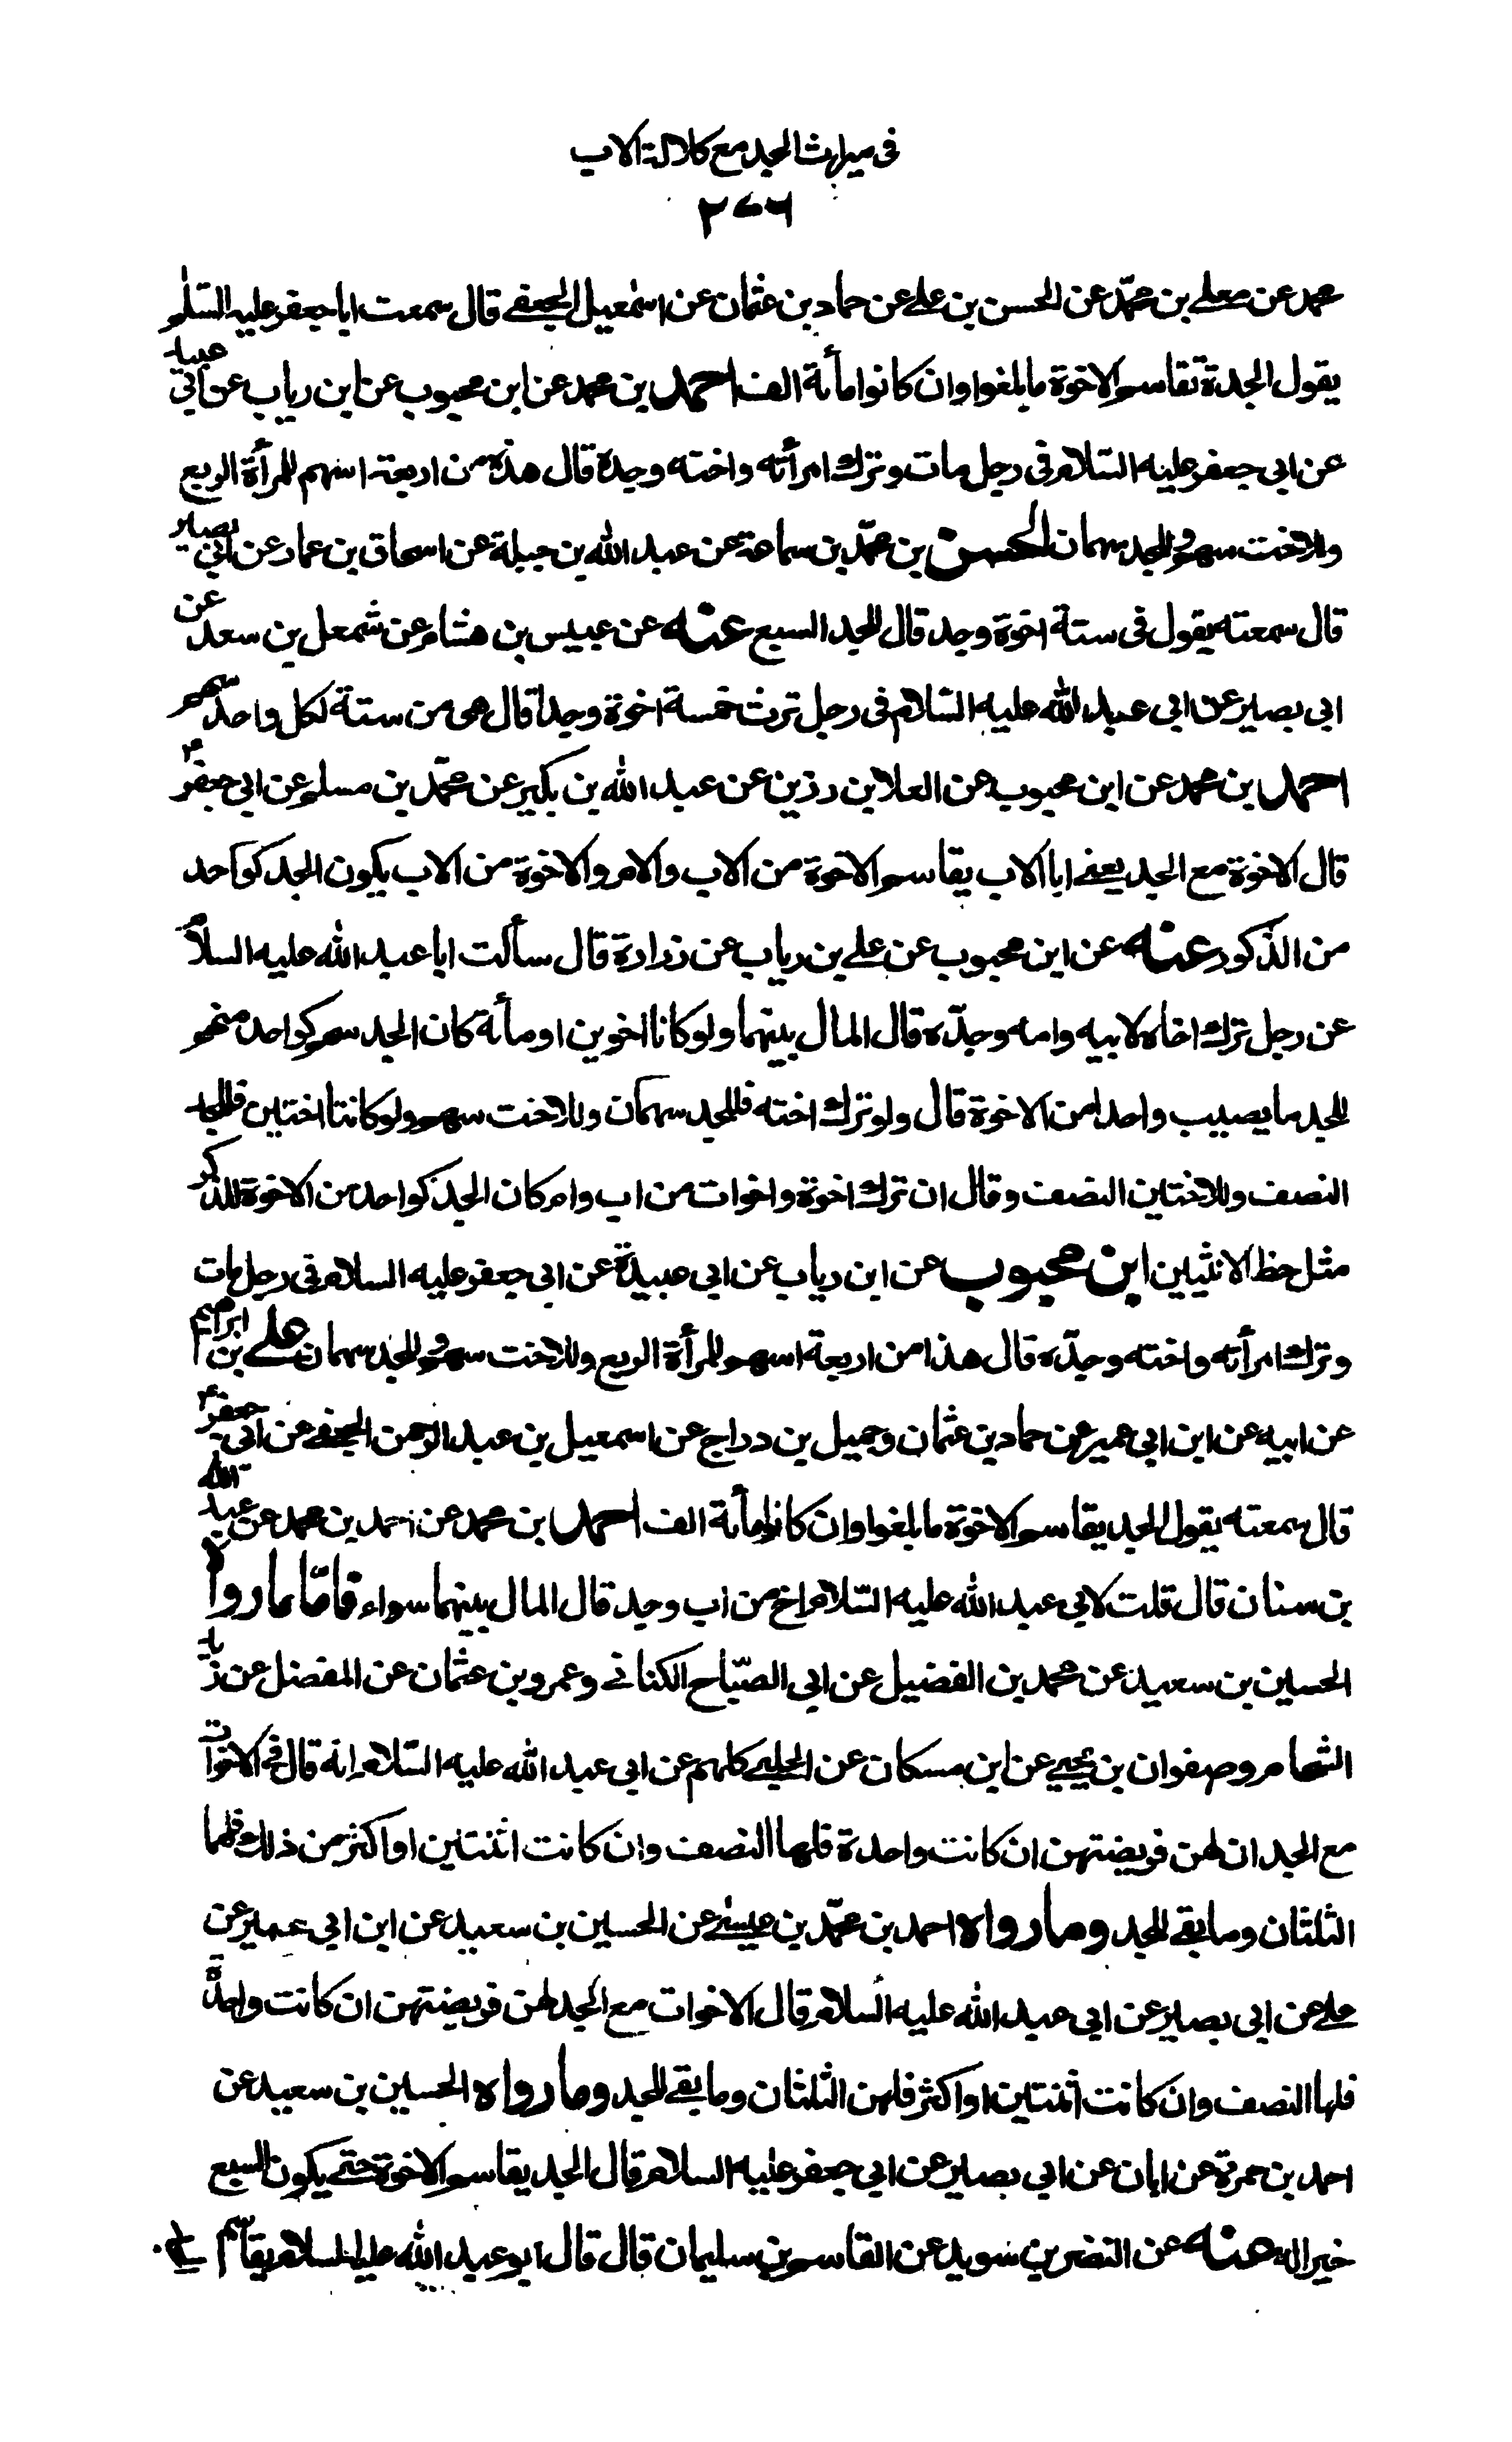 فى ميراث الجد مع كلالة الاب
٢٧٦
محمد عن معلى بن محمّد عن الحسن بن على عن حماد بن عثمان عن اسمعيل الجعفى قال سمعت ابا جعفر عليه السّلم
يقول الجدة تقاسم الاخوة ما بلغوا وان كانوا مأىة الف احمد بن محمد عن ابن محبوب عن ابن رياب عن ابي عبيدة
عن ابى جعفر عليه السّلام فى رجل مات وترك امرأته واخته وجده قال هذه من اربعة اسهم للمرأة الربع
وللاخت سهم وللجد سهمان الحسن بن محمّد بن سماعة عن عبد الله بن جبلة عن اسحاق بن عمار عن ابي بصير
قال سمعته يقول فى ستة اخوة وجد قال للجد السبع عنه عن عبيس بن هشام عن شمعل بن سعد عن
ابى بصير عن ابى عبد الله عليه السّلام فى رجل ترك خمسة اخوة وجدا قال هى من ستة لكل واحد سهم
احمد بن محمد عن ابن محبوب عن العلا بن رزين عن عبد الله بن بكير عن محمّد بن مسلم عن ابى جعفر ع
قال الاخوة مع الجد يعنى ابا الاب يقاسم الاخوة من الاب والام والاخوة من الاب يكون الجد كواحد
من الذكور عنه عن ابن محبوب عن على بن رياب عن زرارة قال سألت ابا عبد الله عليه السلام
عن رجل ترك اخاه لابيه وامه وجدّه قال المال بينهما ولو كانا اخوين او مأة كان الجد معهم كواحد منهم
للجد ما يصيب واحدا من الاخوة قال ولو ترك اخته فللجد سهمان وللاخت سهم ولو كانتا اختين فللجد
النصف وللاختين النصف وقال ان ترك اخوة واخوات من اب وام كان الجد كواحد من الاخوة للذكر
مثل حظ الانثيين ابن محبوب عن ابن رياب عن ابى عبيدة عن ابى جعفر عليه السلام فى رجل مات
وترك امرأته واخته وجدّه قال هذا من اربعة اسهم للمرأة الربع وللاخت سهم وللجد سهمان على بن ابراهيم
عن ابيه عن ابن ابى عمير عن حماد بن عثمان وجميل بن دراج عن اسمعيل بن عبد الرحمن الجعفى عن ابى جعفر ع
قال سمعته يقول الجد يقاسم الاخوة ما بلغوا وان كانوا مأىة الف احمد بن محمد عن احمد بن محمد عن عبد الله
بن سنان قال قلت لابي عبد الله عليه السّلام اخ من اب وجد قال المال بينهما سواء فامّا ما رواه
الحسين بن سعيد عن محمد بن الفضيل عن ابى الصّباح الكنانى وعمرو بن عثمان عن المفضل عن زيد
الشحام وصفوان بن يحيى عن ابن مسكان عن الحلبى كلهم عن ابى عبد الله عليه السّلام انه قال فى الاخوات
مع الجد ان لهن فريضتهن ان كانت واحدة فلها النصف وان كانت اثنتين او اكثر من ذلك فلهما
الثلثان وما بقى للجد وما رواه احمد بن محمّد بن عيسى عن الحسين بن سعيد عن ابن ابى عمير عن
على عن ابى بصير عن ابى عبد الله عليه السلام قال الاخوات مع الجد لهن فريضتهن ان كانت واحدة
فلها النصف وان كانت اثنتين او اكثر فلهن الثلثان وما بقى للجد وما رواه الحسين بن سعيد عن
احمد بن حمزة عن ابان عن ابى بصير عن ابى جعفر عليه السلام قال الجد يقاسم الاخوة حتى يكون السبع
خيرا له عنه عن النضر بن سويد عن القاسم بن سليمان قال قال ابو عبد الله عليه السلام يقاسم